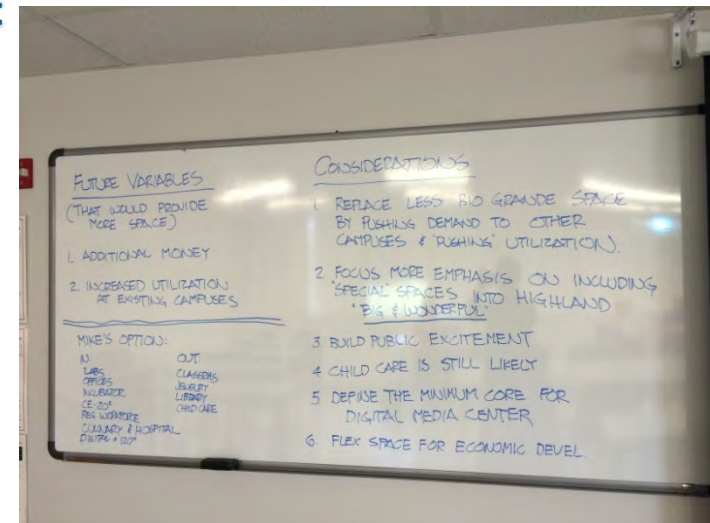 FUTURE VARIABLES
(THAT WOULD PROVIDE
MORE SPACE)
1. ADDITIONAL MONEY
2. INCREASED UTILIZATION
AT EXISTING CAMPUSES
MIKE'S OPTION:
IN:
LABS
OFFICES
INCUBATOR
CE-20°
REG WORKFORCE
CULINARY & HOSPITAL
DIGITAL
OUT:
CLASSRMS
JEWELRY
LIBRARY
CHILD CARE
CONSIDERATIONS
1. REPLACE LESS RIO GRANDE SPACE
BY PUSHING DEMAND TO OTHER
CAMPUSES & "PUSHING" UTILIZATION.
2. FOCUS MORE EMPHASIS ON INCLUDING
"SPECIAL" SPACES INTO HIGHLAND
"BIG & WONDERFUL"
3. BUILD PUBLIC EXCITEMENT
4 CHILD CARE IS STILL LIKELY
5 DEFINE THE MINIMUM CORE FOR
DIGITAL MEDIA CENTER
6. FLEX SPACE FOR ECONOMIC DEVEL.